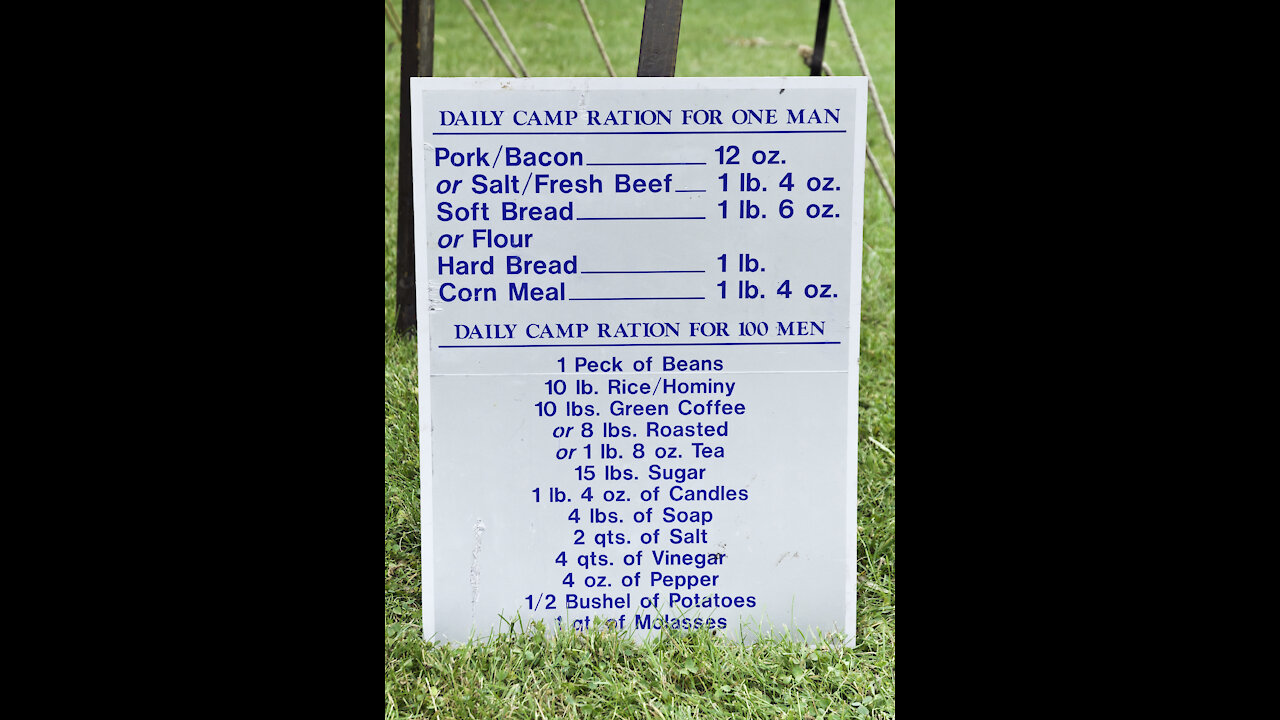 DAILY CAMP RATION FOR ONE MAN
Pork/Bacon 12 oz.
or Salt/Fresh Beef 1 lb. 4 oz.
Soft Bread 1 lb. 6 oz.
or Flour
Hard Bread 1 lb.
Corn Meal 1 lb. 4 oz.
DAILY CAMP RATION FOR 100 MEN
1 Peck of Beans
10 lb. Rice/Hominy
10 lbs. Green Coffee
or 8 lbs. Roasted
or 1 lb. 8 oz. Tea
15 lbs. Sugar
1 lb. 4 oz. of Candles
4 lbs. of Soap
2 qts. of Salt
4 qts. of Vinegar
4 oz. of Pepper
1/2 Bushel of Potatoes
1 qt. of Molasses